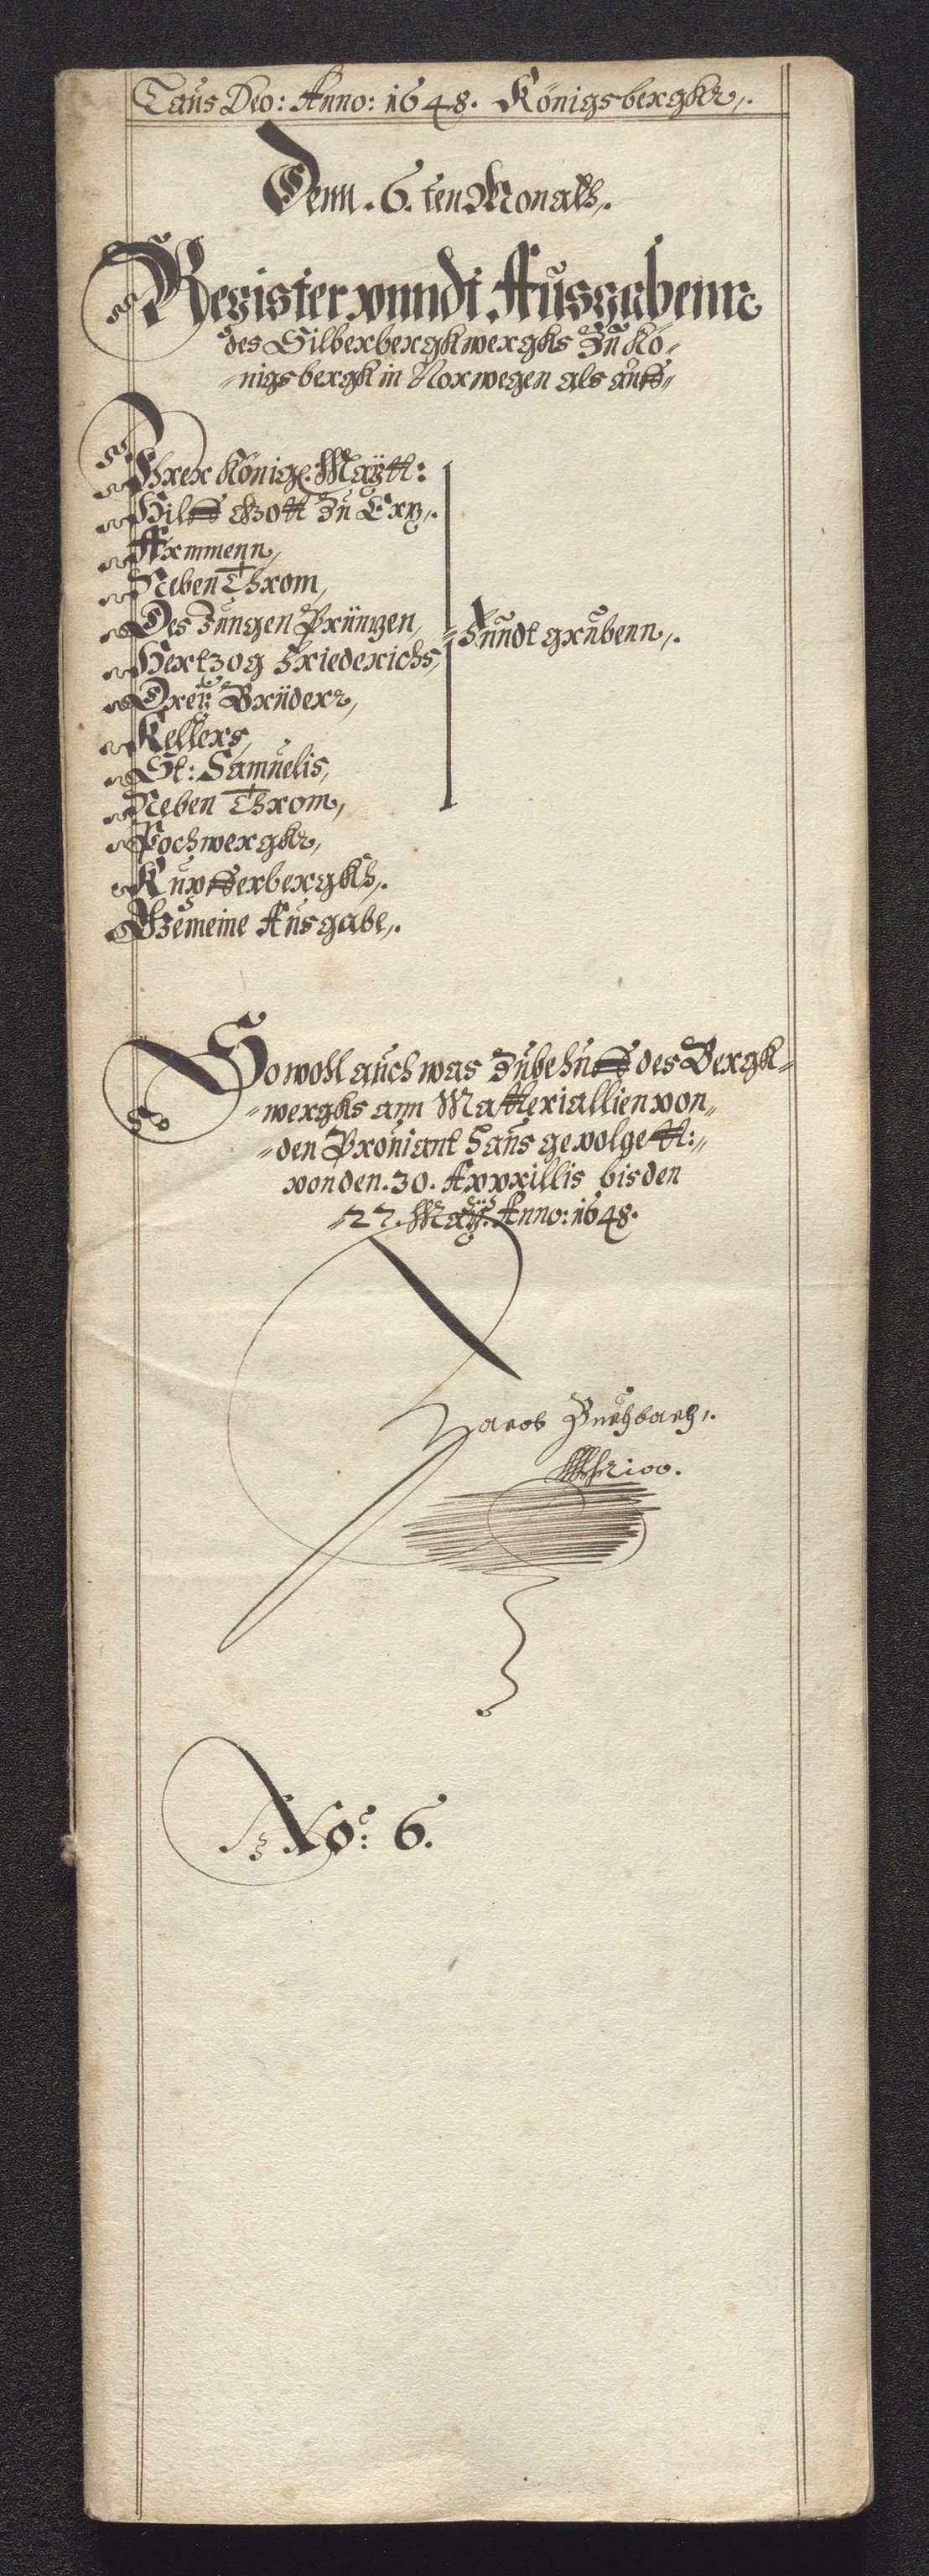 Laus Deo: Anno: 1648. Königsbergkh,.
Denn. 6. ten Monaths,.
Register vnndt Ausgabenn
des Silberbergkwergks Zu Kö-
-nigsbergk in Norwegen als auff-
Ihrer Königl. Maÿtt:
Hilff Gott Zu Ertz,.
Armmenn,
Neben Throm,
Des Jungen Printzen,
Hertzog Friederichs,
Dreÿ Brüder,
Kellers,
St: Samuelis,
Neben Throm,
Fundtgrubenn,.
Pochwergkh,
Kupfferbergkh,.
Gemeine Ausgabe,.
So woll auch was Zubehuff des Bergk-
-wergks ann Matteriallien von,,
-den Proviant Haus gevolgett:,,
von den. 30. Apprillis bis den
27. Maÿ. Anno: 1648.
Jacob Buchbach,.
No: 6.